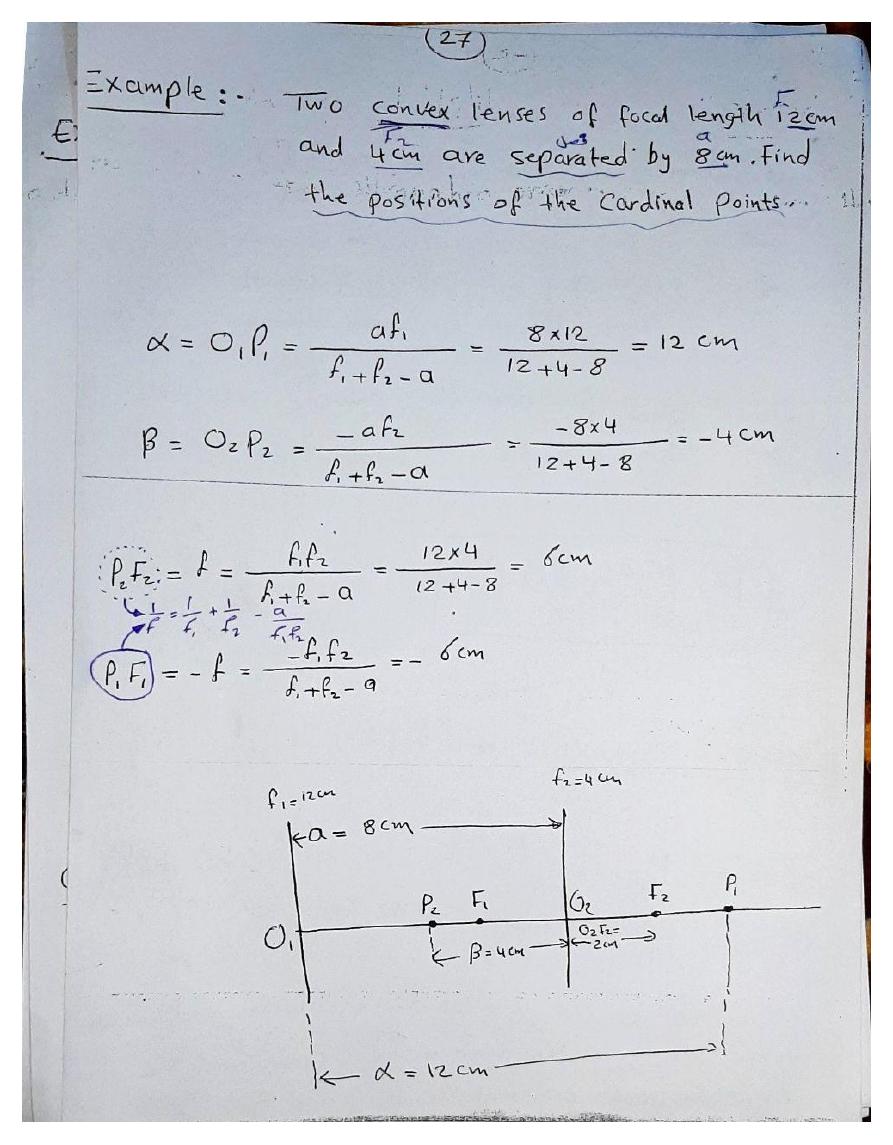 27
Example :-
Two convex lenses of focal length 12cm
and 4cm are separated by 8cm. Find
the positions of the Cardinal Points...
F₂
a
E
α = O₁P₁ = af₁ / f₁+f₂-a = 8×12 / 12+4-8 = 12 cm
β = O₂P₂ = -af₂ / f₁+f₂-a = -8×4 / 12+4-8 = -4cm
P₂F₂ = f = f₁f₂ / f₁+f₂-a = 12×4 / 12+4-8 = 6cm
1/f = 1/f₁ + 1/f₂ - a/f₁f₂
P₁F₁ = -f = -f₁f₂ / f₁+f₂-a = - 6cm
f₁=12cm
f₂=4cm
a = 8cm
P₂ F₁ O₂ F₂ P₁
O₁
β=4cm
O₂F₂=
2cm
α = 12cm